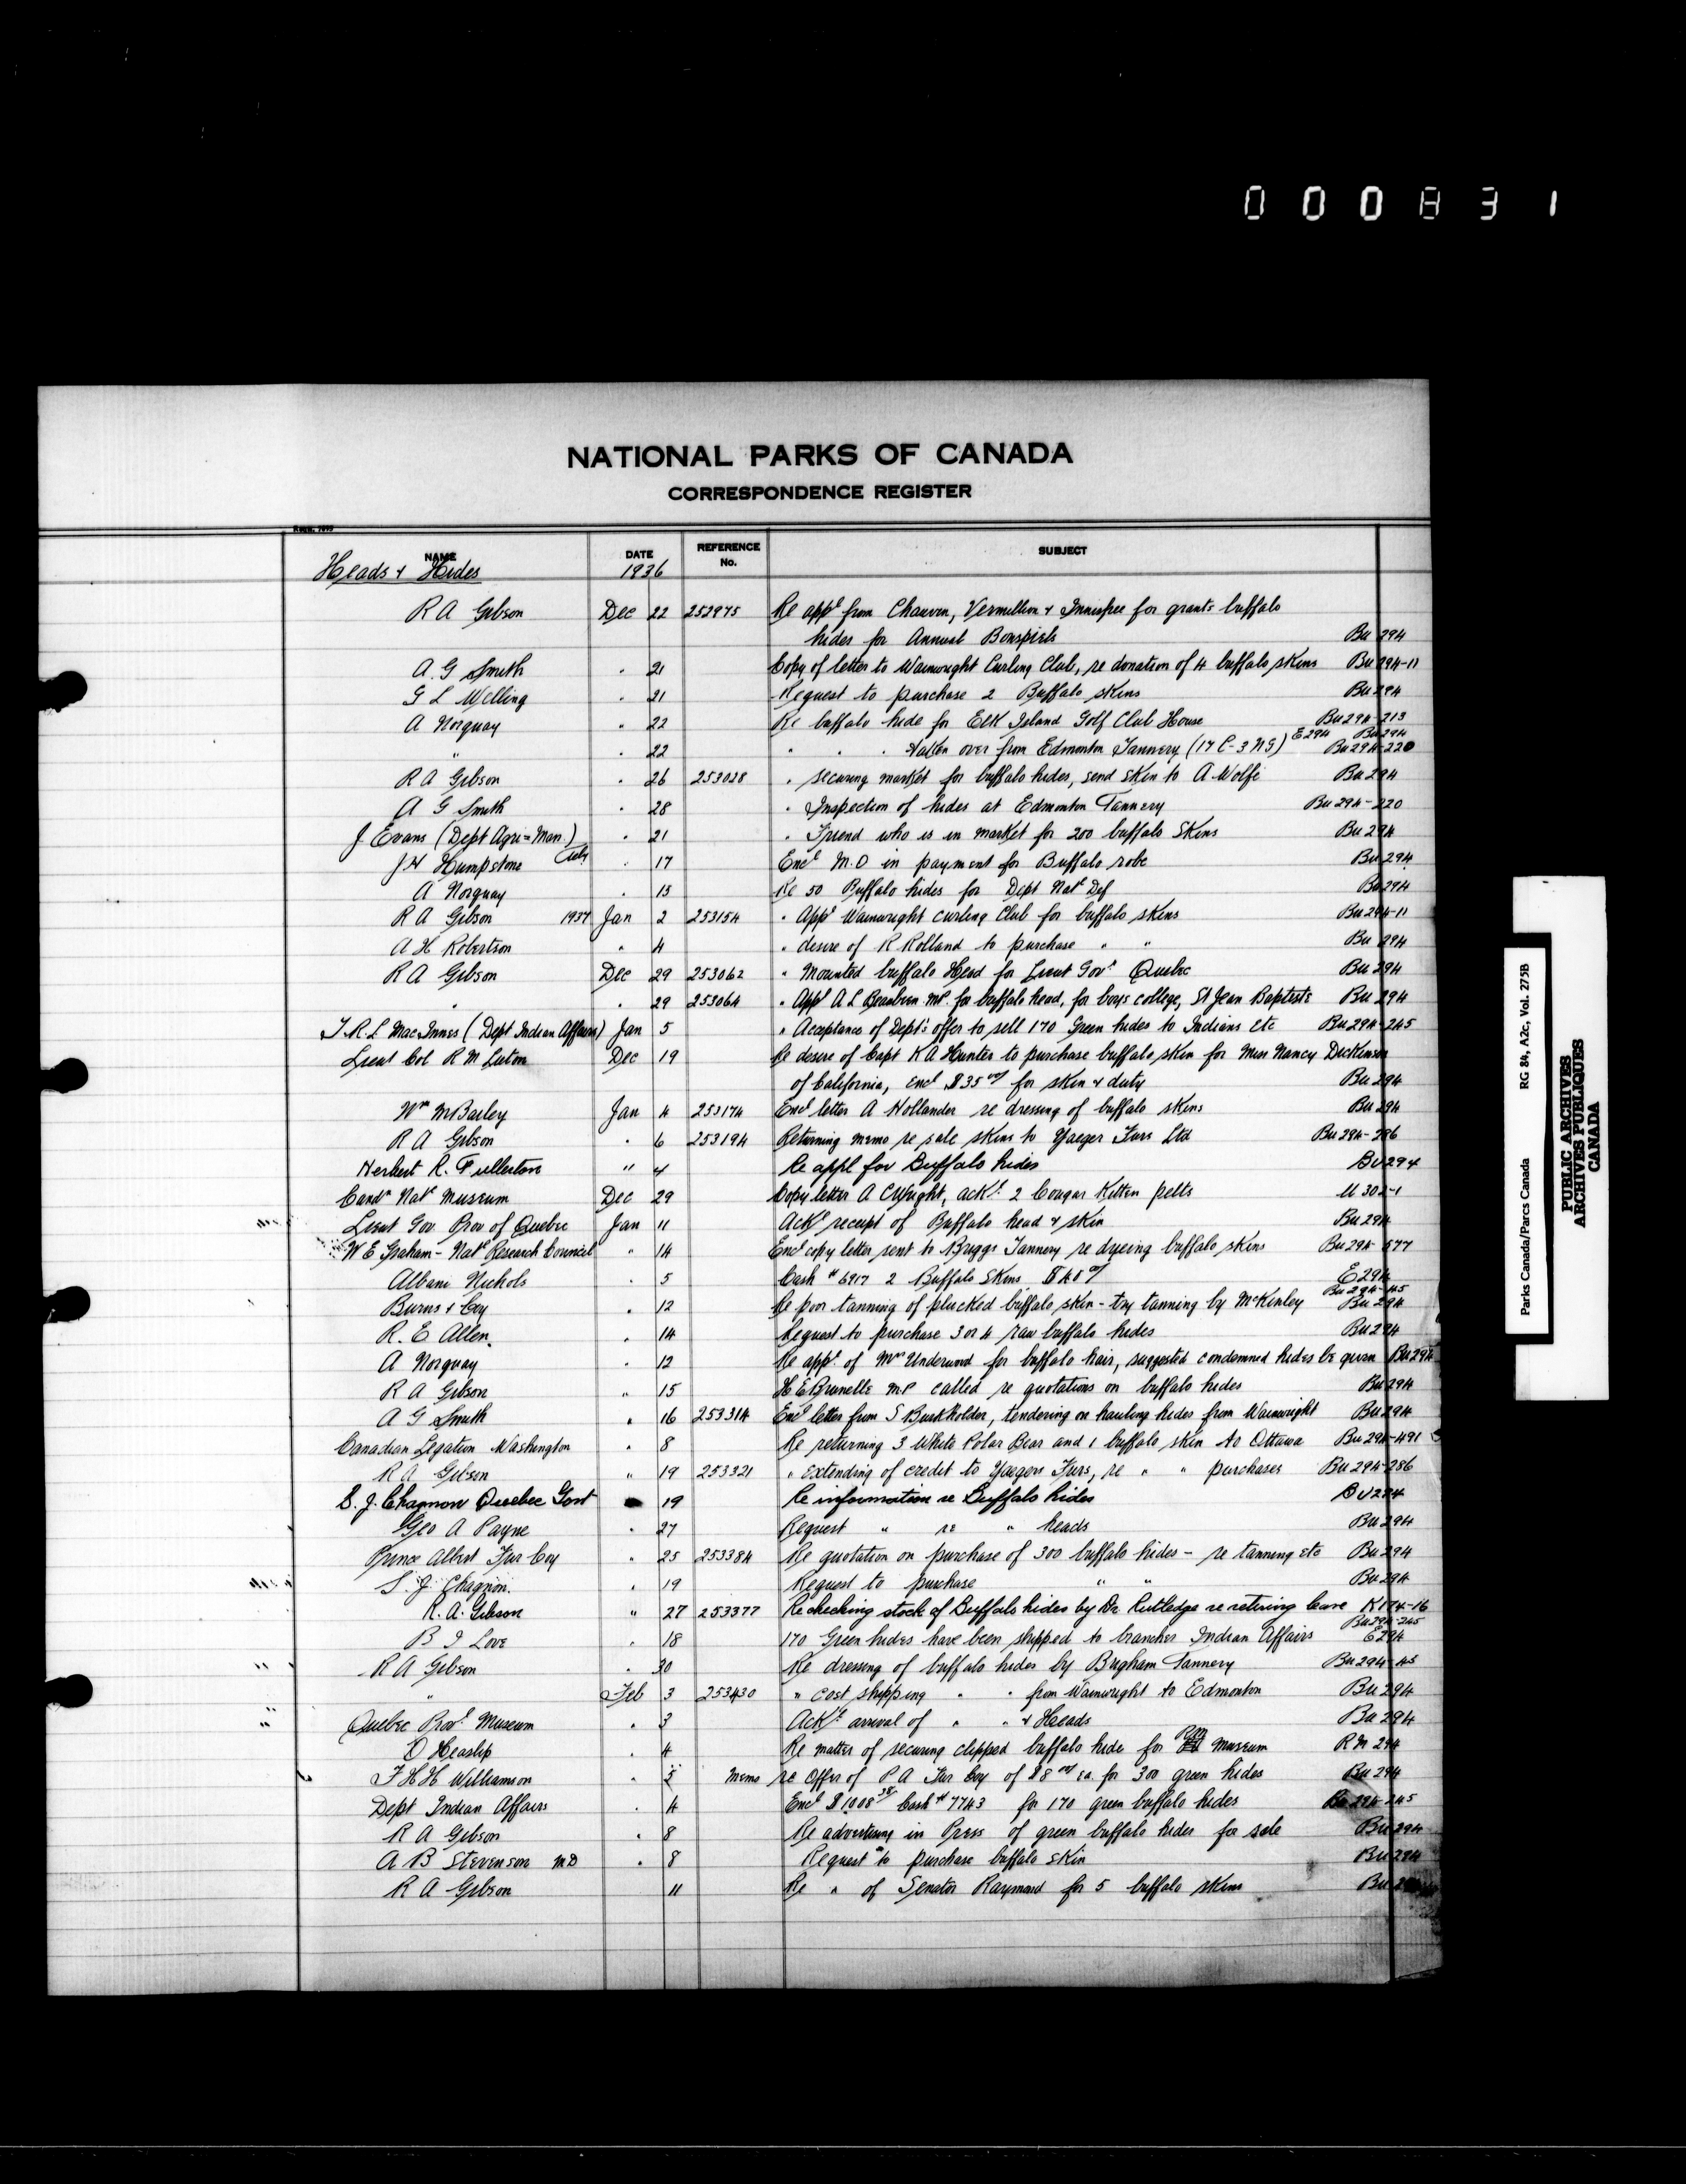 000831
NATIONAL PARKS OF CANADA
CORRESPONDENCE REGISTER
NAME DATE REFERENCE No. SUBJECT
Heads & Hides 1936
R A Gibson Dec 22 252975 Re appl from Chauvin, Vermillion & Innisfree for grants buffalo
hides for Annual Bonspiels Bu 294
A. G Smith " 21 Copy of letter to Wainwright Curling Club, re donation of 4 buffalo skins Bu 294-11
G L Welling " 21 Request to purchase 2 Buffalo skins Bu 294
A Norquay " 22 Re buffalo hide for Elk Island Golf Club House Bu 294-213
" " 22 " " " taken over from Edmonton Tannery (17 C-3 NG) E 294 Bu 294 Bu 294-220
R A Gibson " 26 253028 " securing market for buffalo hides, send skin to A Wolfe Bu 294
A G Smith " 28 " Inspection of hides at Edmonton Tannery Bu 294-220
J Evans (Dept Agri = Man.) " 21 " Friend who is in market for 200 buffalo Skins Bu 294
J H Humpstone " 17 Encl M.O in payment for Buffalo robe Bu 294
A Norquay " 15 Re 50 Buffalo hides for Dept Natl Def Bu 294
R A Gibson 1937 Jan 2 253154 " Appl Wainwright curling Club for buffalo skins Bu 294-11
A H Robertson " 4 " desire of R Rolland to purchase " " Bu 294
R A Gibson Dec 29 253062 " Mounted buffalo Head for Lieut Govr Quebec Bu 294
" " 29 253064 " Appl A L Beaubien MP. for buffalo head, for boys college, St Jean Baptiste Bu 294
T. R. L MacInnes (Dept Indian Affairs) Jan 5 " Acceptance of Dept's offer to sell 170 Green hides to Indians Etc Bu 294-245
Lieut Col R M Luton Dec 19 Re desire of Capt K A Hunter to purchase buffalo skin for Miss Nancy Dickinson
of California, encl $35 00/ for skin & duty Bu 294
Wm M Barley Jan 4 253174 Encl letter A Hollander re dressing of buffalo skins Bu 294
R A Gibson " 6 253194 Returning memo re sale skins to Yaeger Furs Ltd Bu 294-286
Herbert R. Fullerton " 4 Re appl for Buffalo hides Bu 294
Candn Natl Museum Dec 29 Copy letter A C Wright, ackl 2 Cougar Kitten pelts U 302-1
Lieut Gov Prov of Quebec Jan 11 Ackl receipt of Buffalo head & skin Bu 294
W E Graham - Natl Research Council " 14 Encl copy letter sent to Briggs Tannery re dyeing buffalo skins Bu 294-577
Albani Nichols " 5 Cash # 6917 2 Buffalo Skins E 294
Burns & Coy " 12 Re poor tanning of plucked buffalo skin - try tanning by McKinley Bu 294-45 Bu 294
R. E Allen. " 14 Request to purchase 3 or 4 raw buffalo hides Bu 294
A Norquay " 12 Re appl. of Mrs Underwood for buffalo hair, suggested condemned hides be given Bu 294
R A Gibson " 15 H E Brunelle MP called re quotations on buffalo hides Bu 294
A G Smith " 16 253314 Encl letter from S Burkholder, tendering on hauling hides from Wainwright Bu 294
Canadian Legation Washington " 8 Re returning 3 White Polar Bear and 1 buffalo skin to Ottawa Bu 294-491
R A Gibson " 19 253321 " extending of credit to Yaegers Furs, re " " purchases Bu 294-286
S. J. Chagnon Quebec Govt 19 Re information re Buffalo hides Bu 294
Geo A Payne " 27 Request " re " heads Bu 294
Prince Albert Fur Coy " 25 253384 Re quotation on purchase of 300 buffalo hides - re tanning etc Bu 294
S. J. Chagnon. " 19 Request to purchase " " Bu 294
R. A. Gibson " 27 253377 Re checking stock of Buffalo hides by Dr. Rutledge re retiring leave K 174-16
B I Love " 18 170 Green hides have been shipped to branches Indian Affairs Bu 294-245 E 294
R A Gibson " 30 Re dressing of buffalo hides by Brigham Tannery Bu 294-45
" Feb 3 253430 " cost shipping " " from Wainwright to Edmonton Bu 294
Quebec Provl Museum " 3 Ackl arrival of " " & Heads Bu 294
D Heaslip " 4 Re matter of securing clipped buffalo hide for Museum R M 294
F H H Williamson " 5 Memo re Offer of P A Fur Coy of $8 00/ ea. for 300 green hides Bu 294
Dept Indian Affairs " 4 Encl $1008 38/ Cash # 7743 for 170 green buffalo hides Bu 294-245
R A Gibson " 8 Re advertising in Press of green buffalo hides for sale Bu 294
A B Stevenson MD " 8 Request to purchase buffalo skin Bu 294
R A Gibson 11 Re " of Senator Raymond for 5 buffalo skins
Parks Canada/Parcs Canada RG 84, A2c, Vol. 275B
PUBLIC ARCHIVES
ARCHIVES PUBLIQUES
CANADA